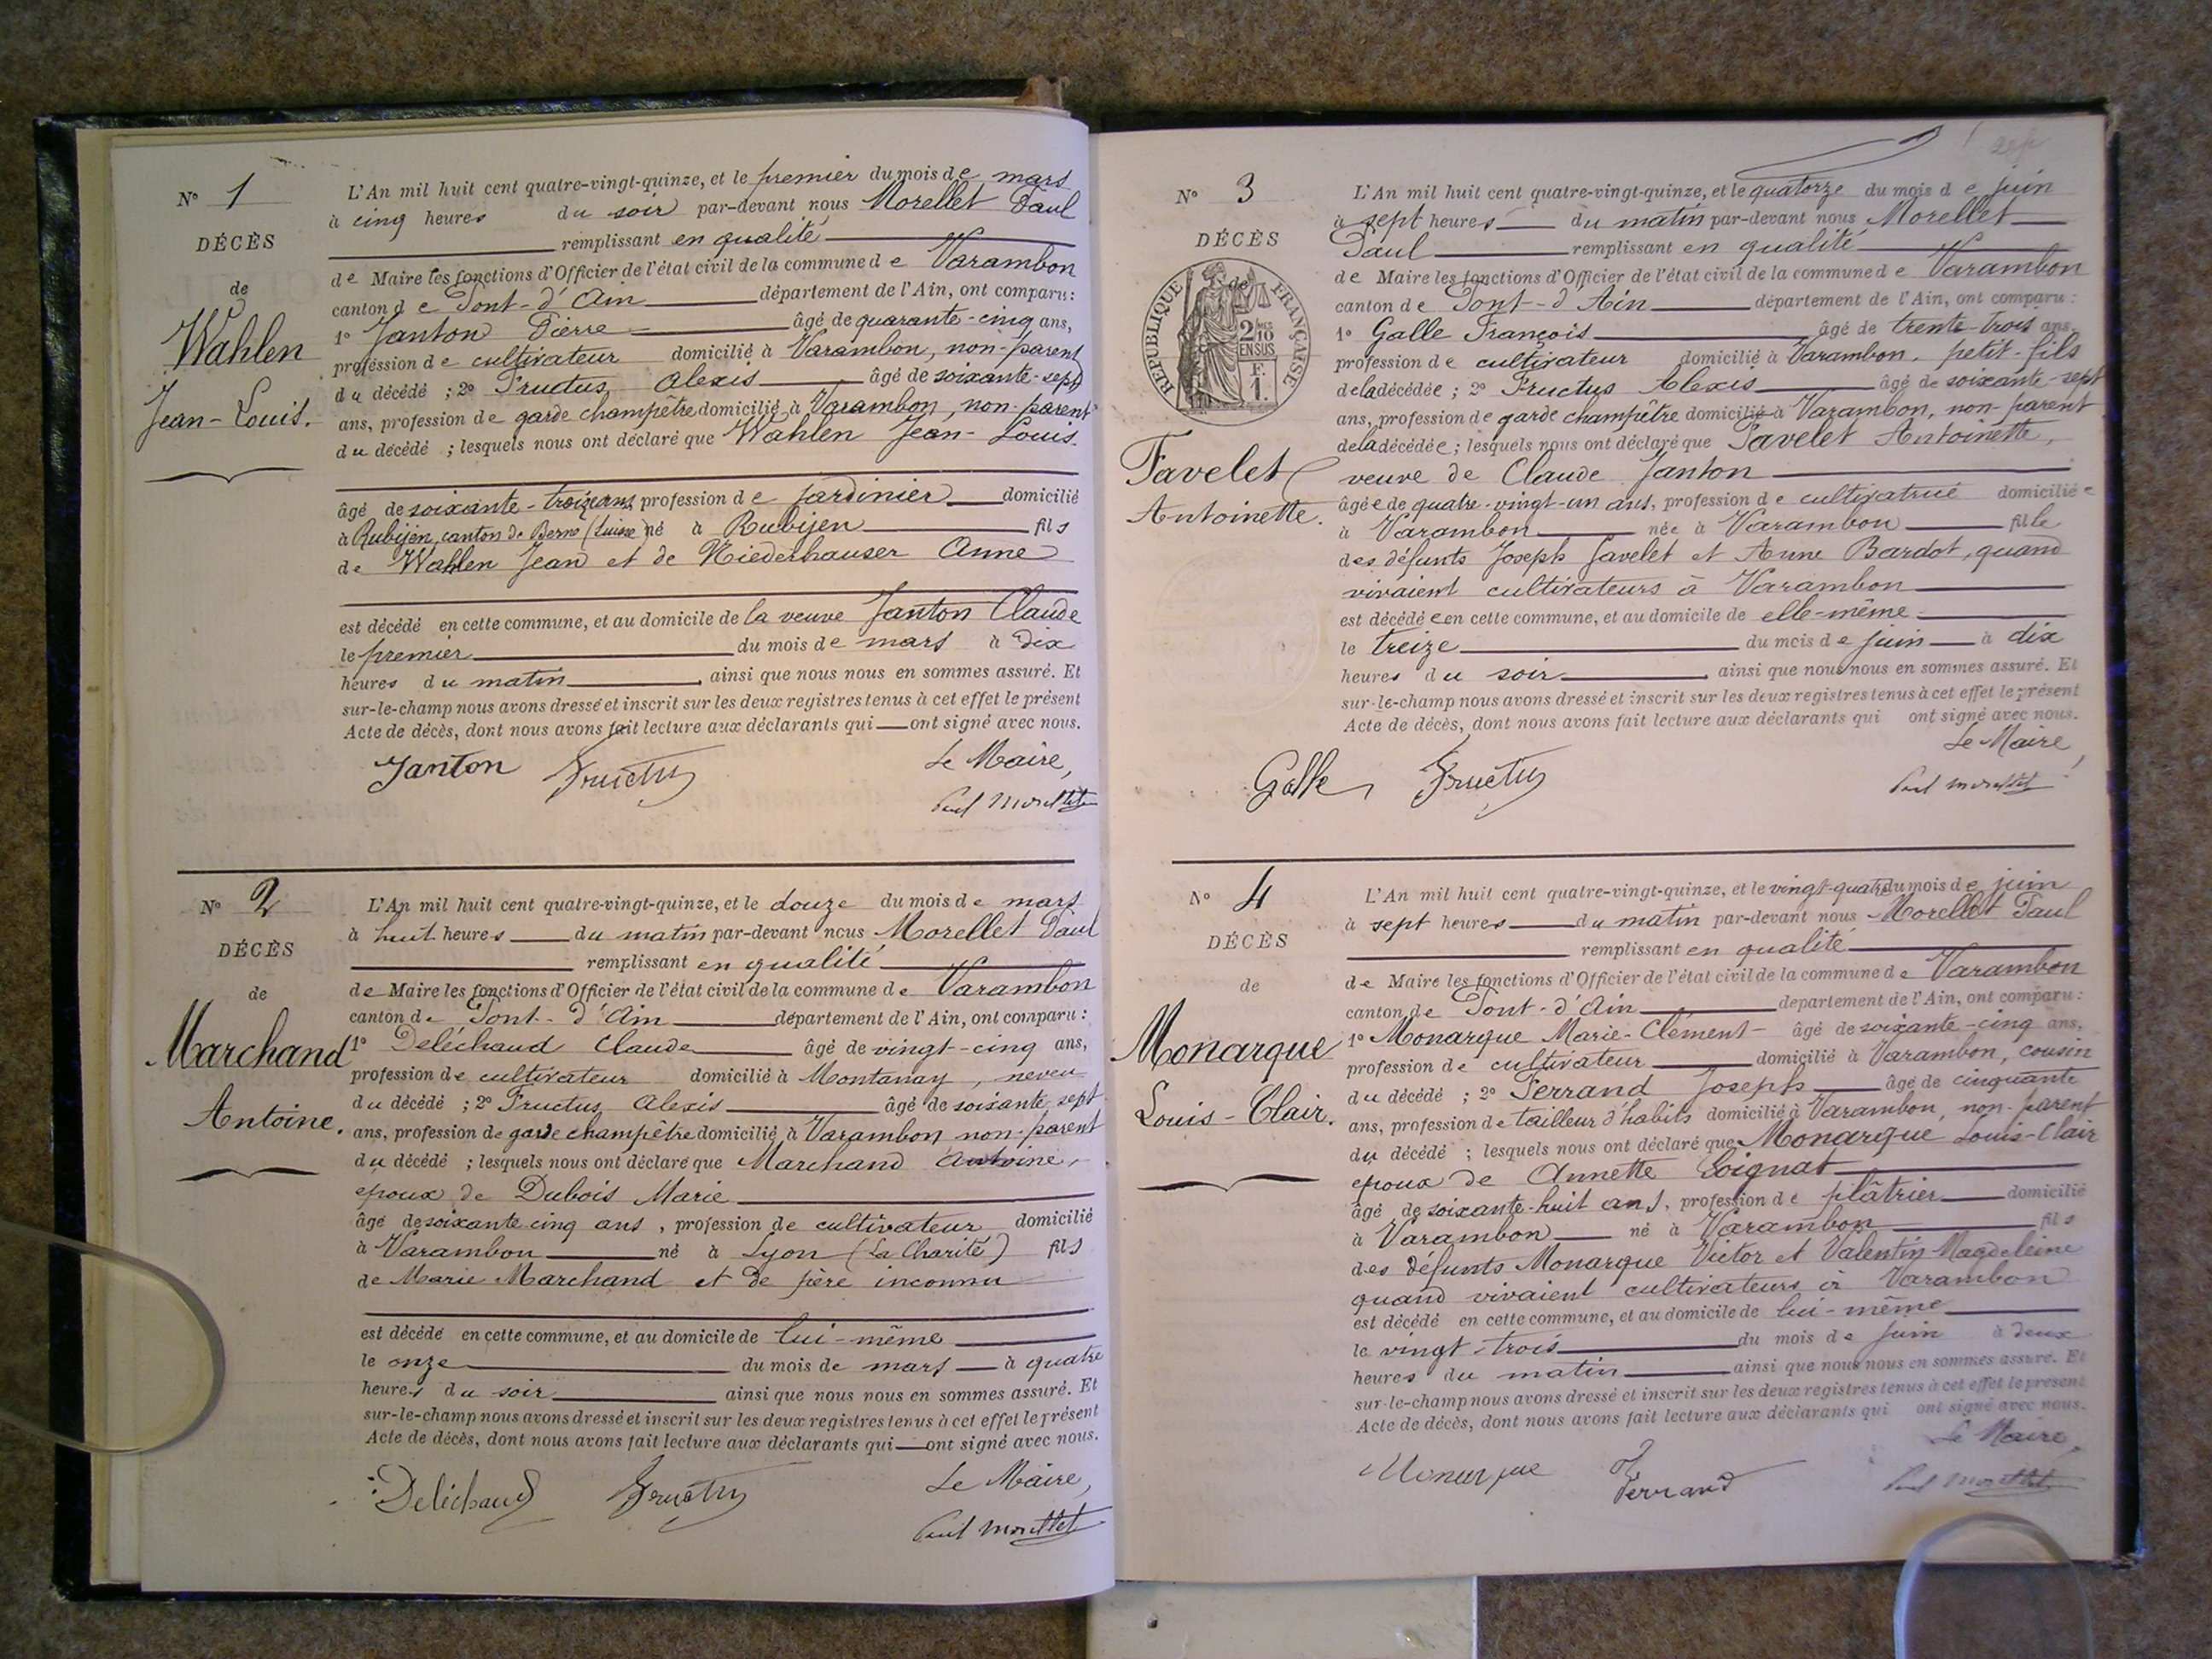 N° 1
DÉCÈS
de
Wahlen
Jean-Louis.
L'An mil huit cent quatre-vingt-quinze, et le premier du mois de mars
à cinq heures du soir par-devant nous Morellet Paul
remplissant en qualité
de Maire les fonctions d'Officier de l'état civil de la commune de Varambon
canton de Pont-d'Ain département de l'Ain, ont comparu:
1° Janton Pierre âgé de quarante-cinq ans,
profession de cultivateur domicilié à Varambon, non-parent
du décédé ; 2° Fructus Alexis âgé de soixante-sept
ans, profession de garde champêtre domicilié à Varambon, non-parent
du décédé ; lesquels nous ont déclaré que Wahlen Jean-Louis.
âgé de soixante-treize ans, profession de jardinier domicilié
à Rubijen, canton de Berne (Suisse né à Rubijen fils
de Wahlen Jean et de Niederhauser Anne
est décédé en cette commune, et au domicile de la veuve Janton Claude
le premier du mois de mars à dix
heures du matin, ainsi que nous nous en sommes assuré. Et
sur-le-champ nous avons dressé et inscrit sur les deux registres tenus à cet effet le présent
Acte de décès, dont nous avons fait lecture aux déclarants qui ont signé avec nous.
Janton Fructus Le Maire,
Paul Morellet
N° 2
DÉCÈS
de
Marchand
Antoine.
L'An mil huit cent quatre-vingt-quinze, et le douze du mois de mars
à huit heures du matin par-devant nous Morellet Paul
remplissant en qualité
de Maire les fonctions d'Officier de l'état civil de la commune de Varambon
canton de Pont-d'Ain département de l'Ain, ont comparu:
1° Deléchaud Claude âgé de vingt-cinq ans,
profession de cultivateur domicilié à Montanay, neveu
du décédé ; 2° Fructus Alexis âgé de soixante sept
ans, profession de garde champêtre domicilié à Varambon non-parent
du décédé ; lesquels nous ont déclaré que Marchand Antoine,
époux de Dubois Marie
âgé de soixante cinq ans, profession de cultivateur domicilié
à Varambon né à Lyon (La Charité) fils
de Marie Marchand et de père inconnu
est décédé en cette commune, et au domicile de lui-même
le onze du mois de mars à quatre
heures du soir ainsi que nous nous en sommes assuré. Et
sur-le-champ nous avons dressé et inscrit sur les deux registres tenus à cet effet le présent
Acte de décès, dont nous avons fait lecture aux déclarants qui ont signé avec nous.
Deléchaud Fructus Le Maire,
Paul Morellet
N° 3
DÉCÈS
de
RÉPUBLIQUE FRANÇAISE
2/10 EN SUS
F. 1.
Favelet
Antoinette.
L'An mil huit cent quatre-vingt-quinze, et le quatorze du mois de juin
à sept heures du matin par-devant nous Morellet
Paul remplissant en qualité
de Maire les fonctions d'Officier de l'état civil de la commune de Varambon
canton de Pont-d'Ain département de l'Ain, ont comparu:
1° Galle François âgé de trente-trois ans,
profession de cultivateur domicilié à Varambon, petit-fils
de la décédée ; 2° Fructus Alexis âgé de soixante-sept
ans, profession de garde champêtre domicilié à Varambon, non-parent
de la décédée ; lesquels nous ont déclaré que Favelet Antoinette,
veuve de Claude Janton
âgée de quatre-vingt-un ans, profession de cultivatrice domiciliée
à Varambon née à Varambon fille
des défunts Joseph Favelet et Anne Bardot, quand
vivaient cultivateurs à Varambon
est décédée en cette commune, et au domicile de elle-même
le treize du mois de juin à dix
heures du soir, ainsi que nous nous en sommes assuré. Et
sur-le-champ nous avons dressé et inscrit sur les deux registres tenus à cet effet le présent
Acte de décès, dont nous avons fait lecture aux déclarants qui ont signé avec nous.
Le Maire,
Galle Fructus Paul Morellet
N° 4
DÉCÈS
de
Monarque
Louis-Clair.
L'An mil huit cent quatre-vingt-quinze, et le vingt-quatre du mois de juin
à sept heures du matin par-devant nous Morellet Paul
remplissant en qualité
de Maire les fonctions d'Officier de l'état civil de la commune de Varambon
canton de Pont-d'Ain département de l'Ain, ont comparu:
1° Monarque Marie-Clément âgé de soixante-cinq ans,
profession de cultivateur domicilié à Varambon, cousin
du décédé ; 2° Perrand Joseph âgé de cinquante
ans, profession de tailleur d'habits domicilié à Varambon, non-parent
du décédé ; lesquels nous ont déclaré que Monarque Louis-Clair
époux de Annette Loignat
âgé de soixante-huit ans, profession de plâtrier domicilié
à Varambon né à Varambon fils
des défunts Monarque Victor et Valentin Magdeleine
quand vivaient cultivateurs à Varambon
est décédé en cette commune, et au domicile de lui-même
le vingt-trois du mois de juin à deux
heures du matin ainsi que nous nous en sommes assuré. Et
sur-le-champ nous avons dressé et inscrit sur les deux registres tenus à cet effet le présent
Acte de décès, dont nous avons fait lecture aux déclarants qui ont signé avec nous.
Le Maire,
Monarque Perrand Paul Morellet